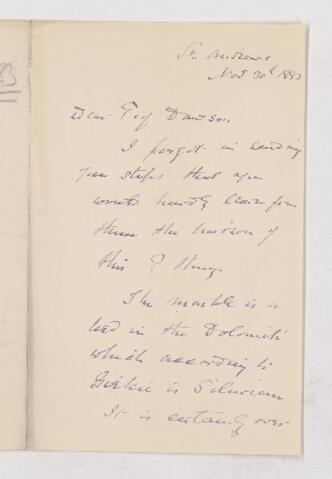 St. Andrews
Nov 30th 1883
Dear Prof Dawson
I forgot in sending
you that you
would hardly learn from
them the horizon of
this ? thing
The marble is a
bed in the Dolomite
which according to
Geikie is Silurian
It is certainly over